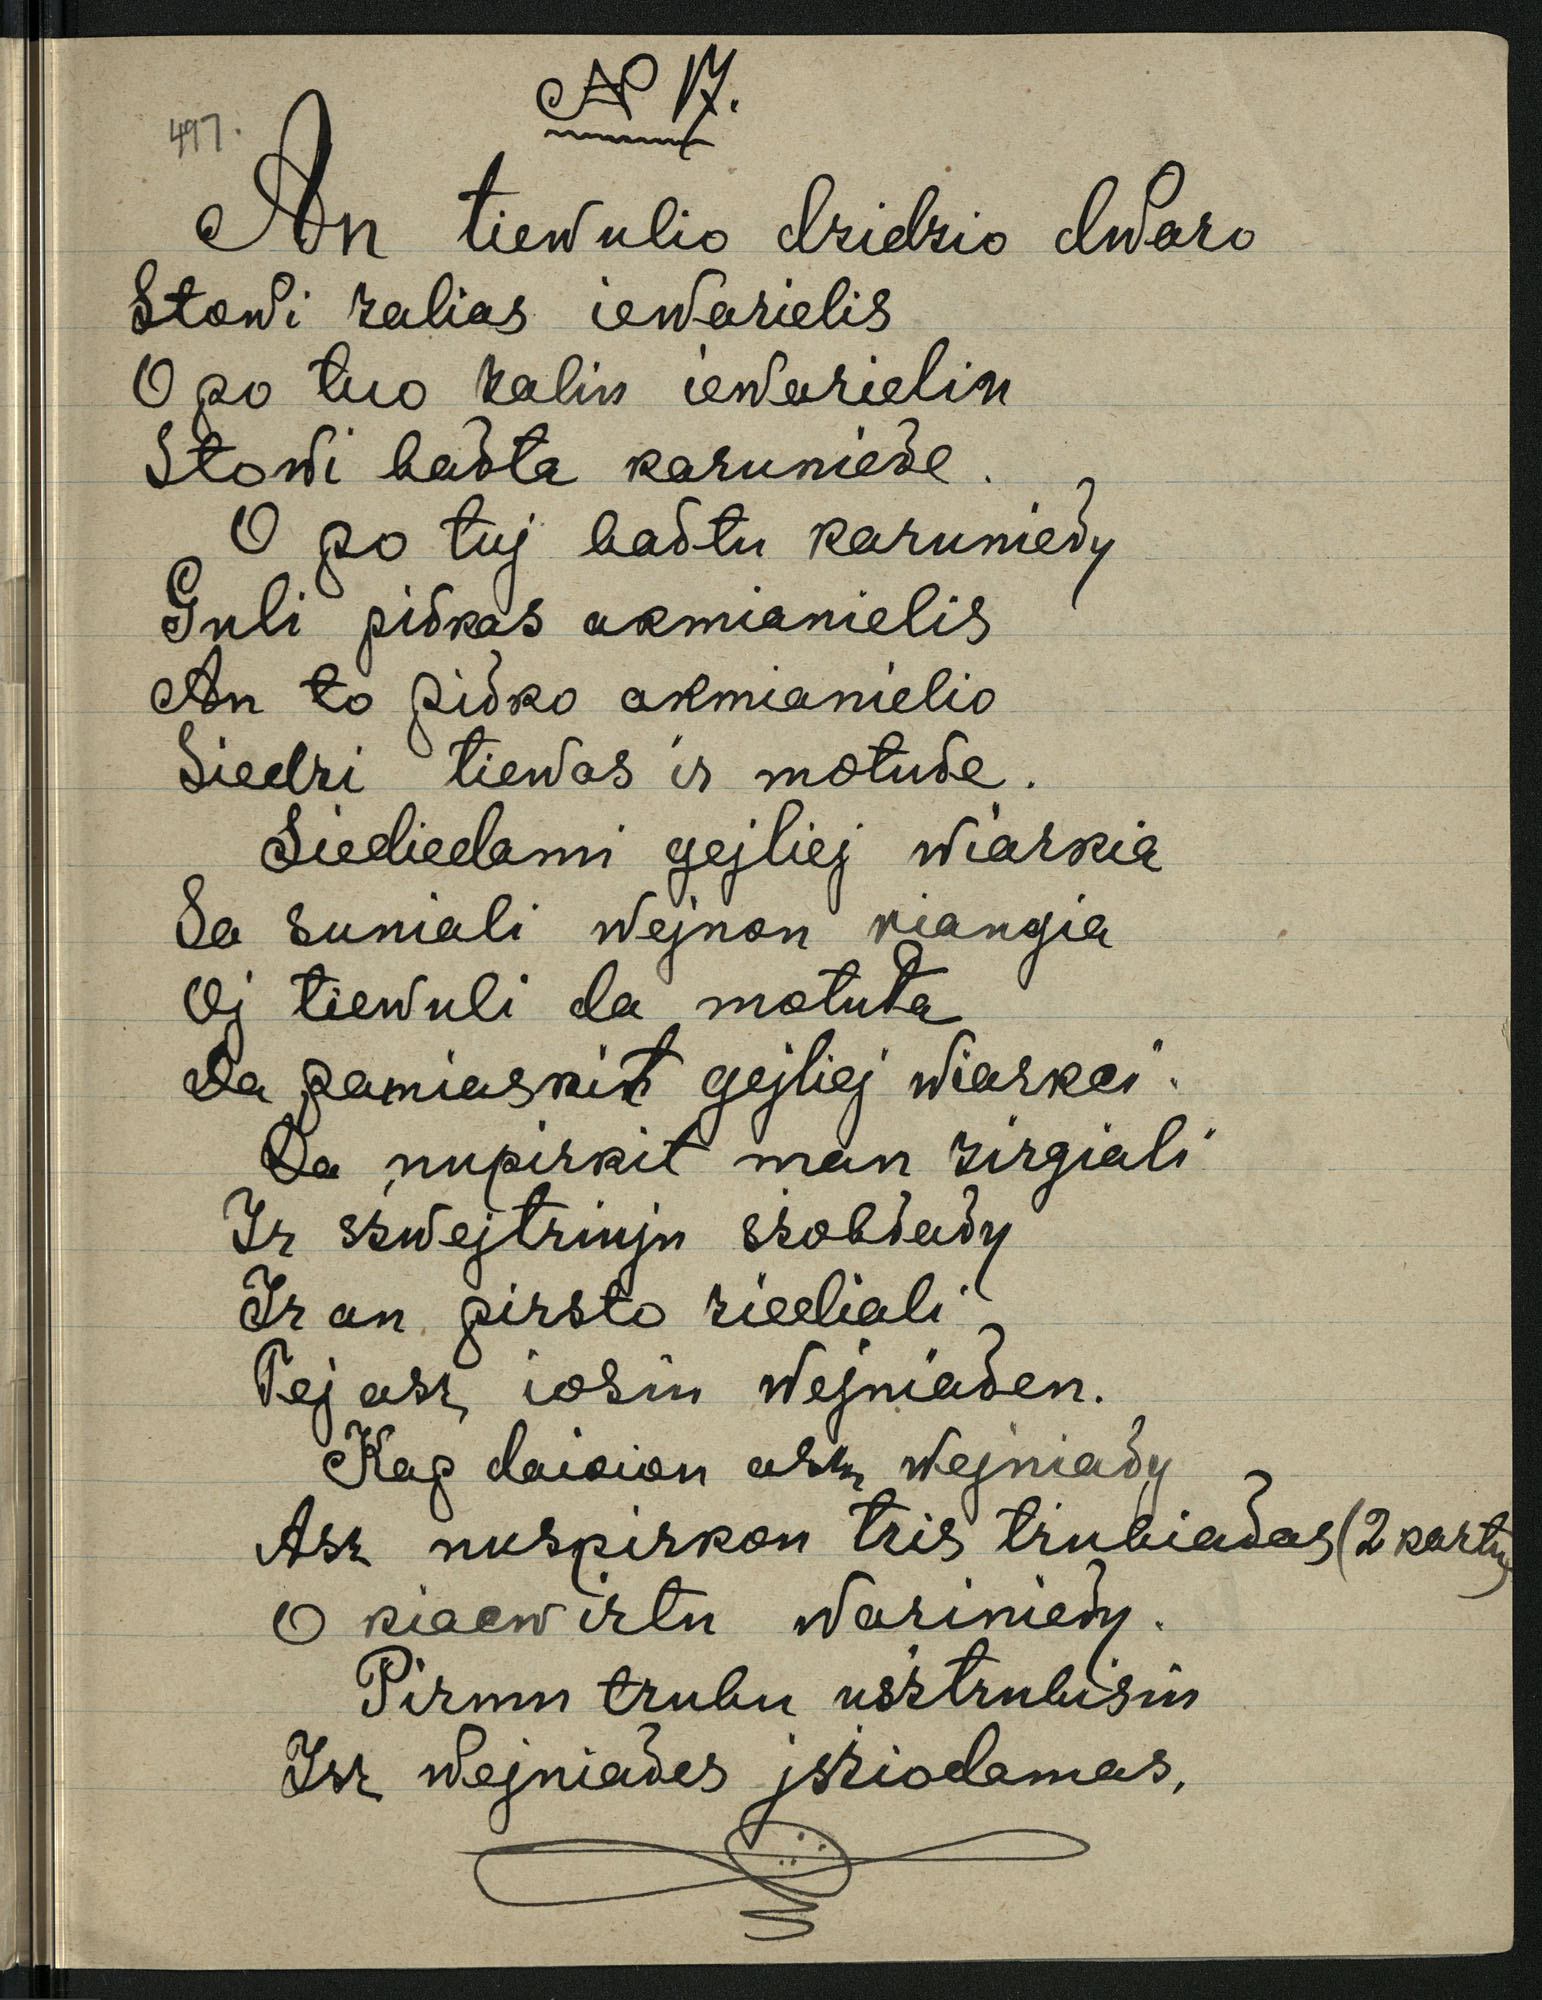 № 17.
497.
An tiewulio dzidzio dwaro
Stowi zalias iewarielis
O po tuo zaliu iewarieliu
Stowi bałta karuniełe.
O po tuj bałtu karunieły
Guli piłkas akmianielis
An to piłko akmianielio
Siedzi tiewas ir motułe.
Siediedami gejliej wiarkia
Sa suniali wejnon riangia
Oj tiewuli da motuła
Da paniaskit gejliej wiarkci.
Da nupirkit man zirgiali
Ir szwejtriuju szobłały
Ir an pirsto ziediali
Tej asz iosiu wejniałen.
Kap daioion asz wejniały
Asz nuspirkon tris trubiałas (2 kartu)
O kiacwirtu warinieły.
Pirmu trubu usztrubisiu
Isz wejniałes jsziodamas,